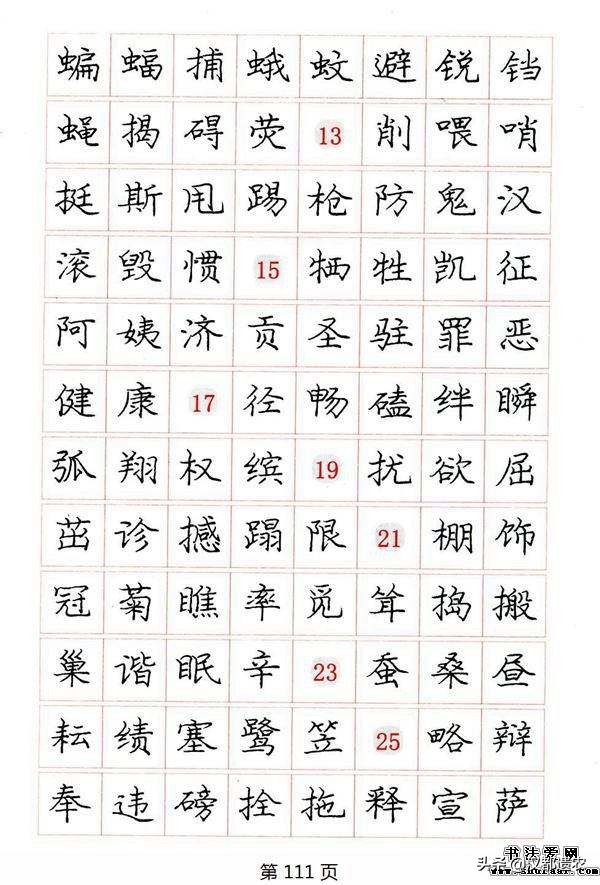 蝙 蝠 捕 蛾 蚊 避 锐 铛
蝇 揭 碍 荧 13 削 喂 哨
挺 斯 甩 踢 枪 防 鬼 汉
滚 毁 惯 15 牺 牲 凯 征
阿 姨 济 贡 圣 驻 罪 恶
健 康 17 径 畅 磕 绊 瞬
弧 翔 权 缤 19 扰 欲 屈
茁 诊 撼 蹋 限 21 棚 饰
冠 菊 瞧 率 觅 耸 捣 搬
巢 谐 眠 辛 23 蚕 桑 昼
耘 绩 塞 鹭 笠 25 略 辩
奉 违 磅 拴 拖 释 宣 萨
第 111 页
书法爱网
头条@汉都遗农
www.shufaar.com